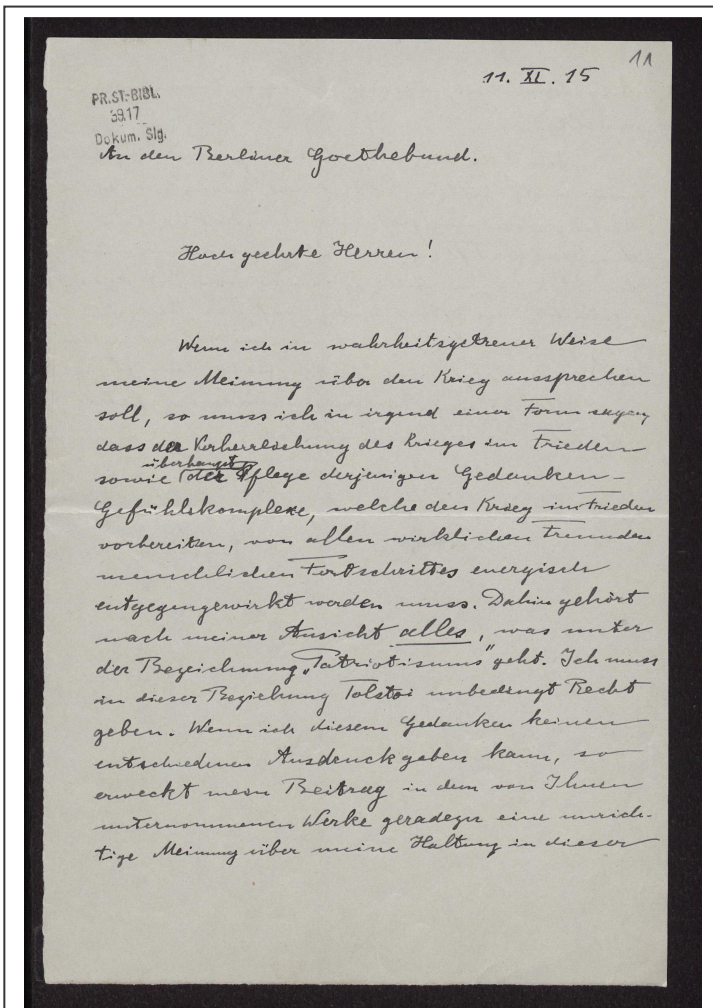 11
11. XI. 15
PR.ST.-BIBL.
39.17
Dokum. Slg.
An den Berliner Goethebund.
Hochgeehrte Herren!
Wenn ich in wahrheitsgetreuer Weise
meine Meinung über den Krieg aussprechen
soll, so muss ich in irgend einer Form sagen,
dass der Verherrlichung des Krieges im Frieden
überhaupt
sowie der Pflege derjenigen Gedanken-
Gefühlskomplexe, welche den Krieg im Frieden
vorbereiten, von allen wirklichen Freunden
menschlichen Fortschrittes energisch
entgegengewirkt werden muss. Dahin gehört
nach meiner Ansicht alles, was unter
der Bezeichnung „Patriotismus" geht. Ich muss
in dieser Beziehung Tolstoi unbedingt Recht
geben. Wenn ich diesem Gedanken keinen
entschiedenen Ausdruck geben kann, so
erweckt mein Beitrag in dem von Ihnen
unternommenen Werke geradezu eine unrich-
tige Meinung über meine Haltung in dieser